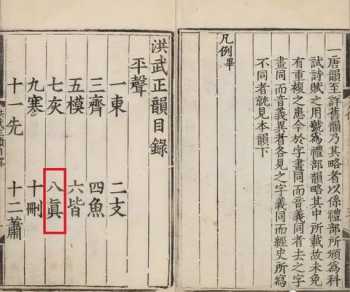 一唐韻至許舊韻乃其略者以係禮部所頒為科
試詩賦之用號為禮部韻略其中所載故未免
有重複之患今於字畫同而音義同者去之字
畫同而音義異者各見之字義同而經史所寫
不同者就見本韻下
凡例畢
洪武正韻目錄
平聲
一東 二支
三齊 四魚
五模 六皆
七灰 八眞
九寒 十刪
十一先 十二蕭